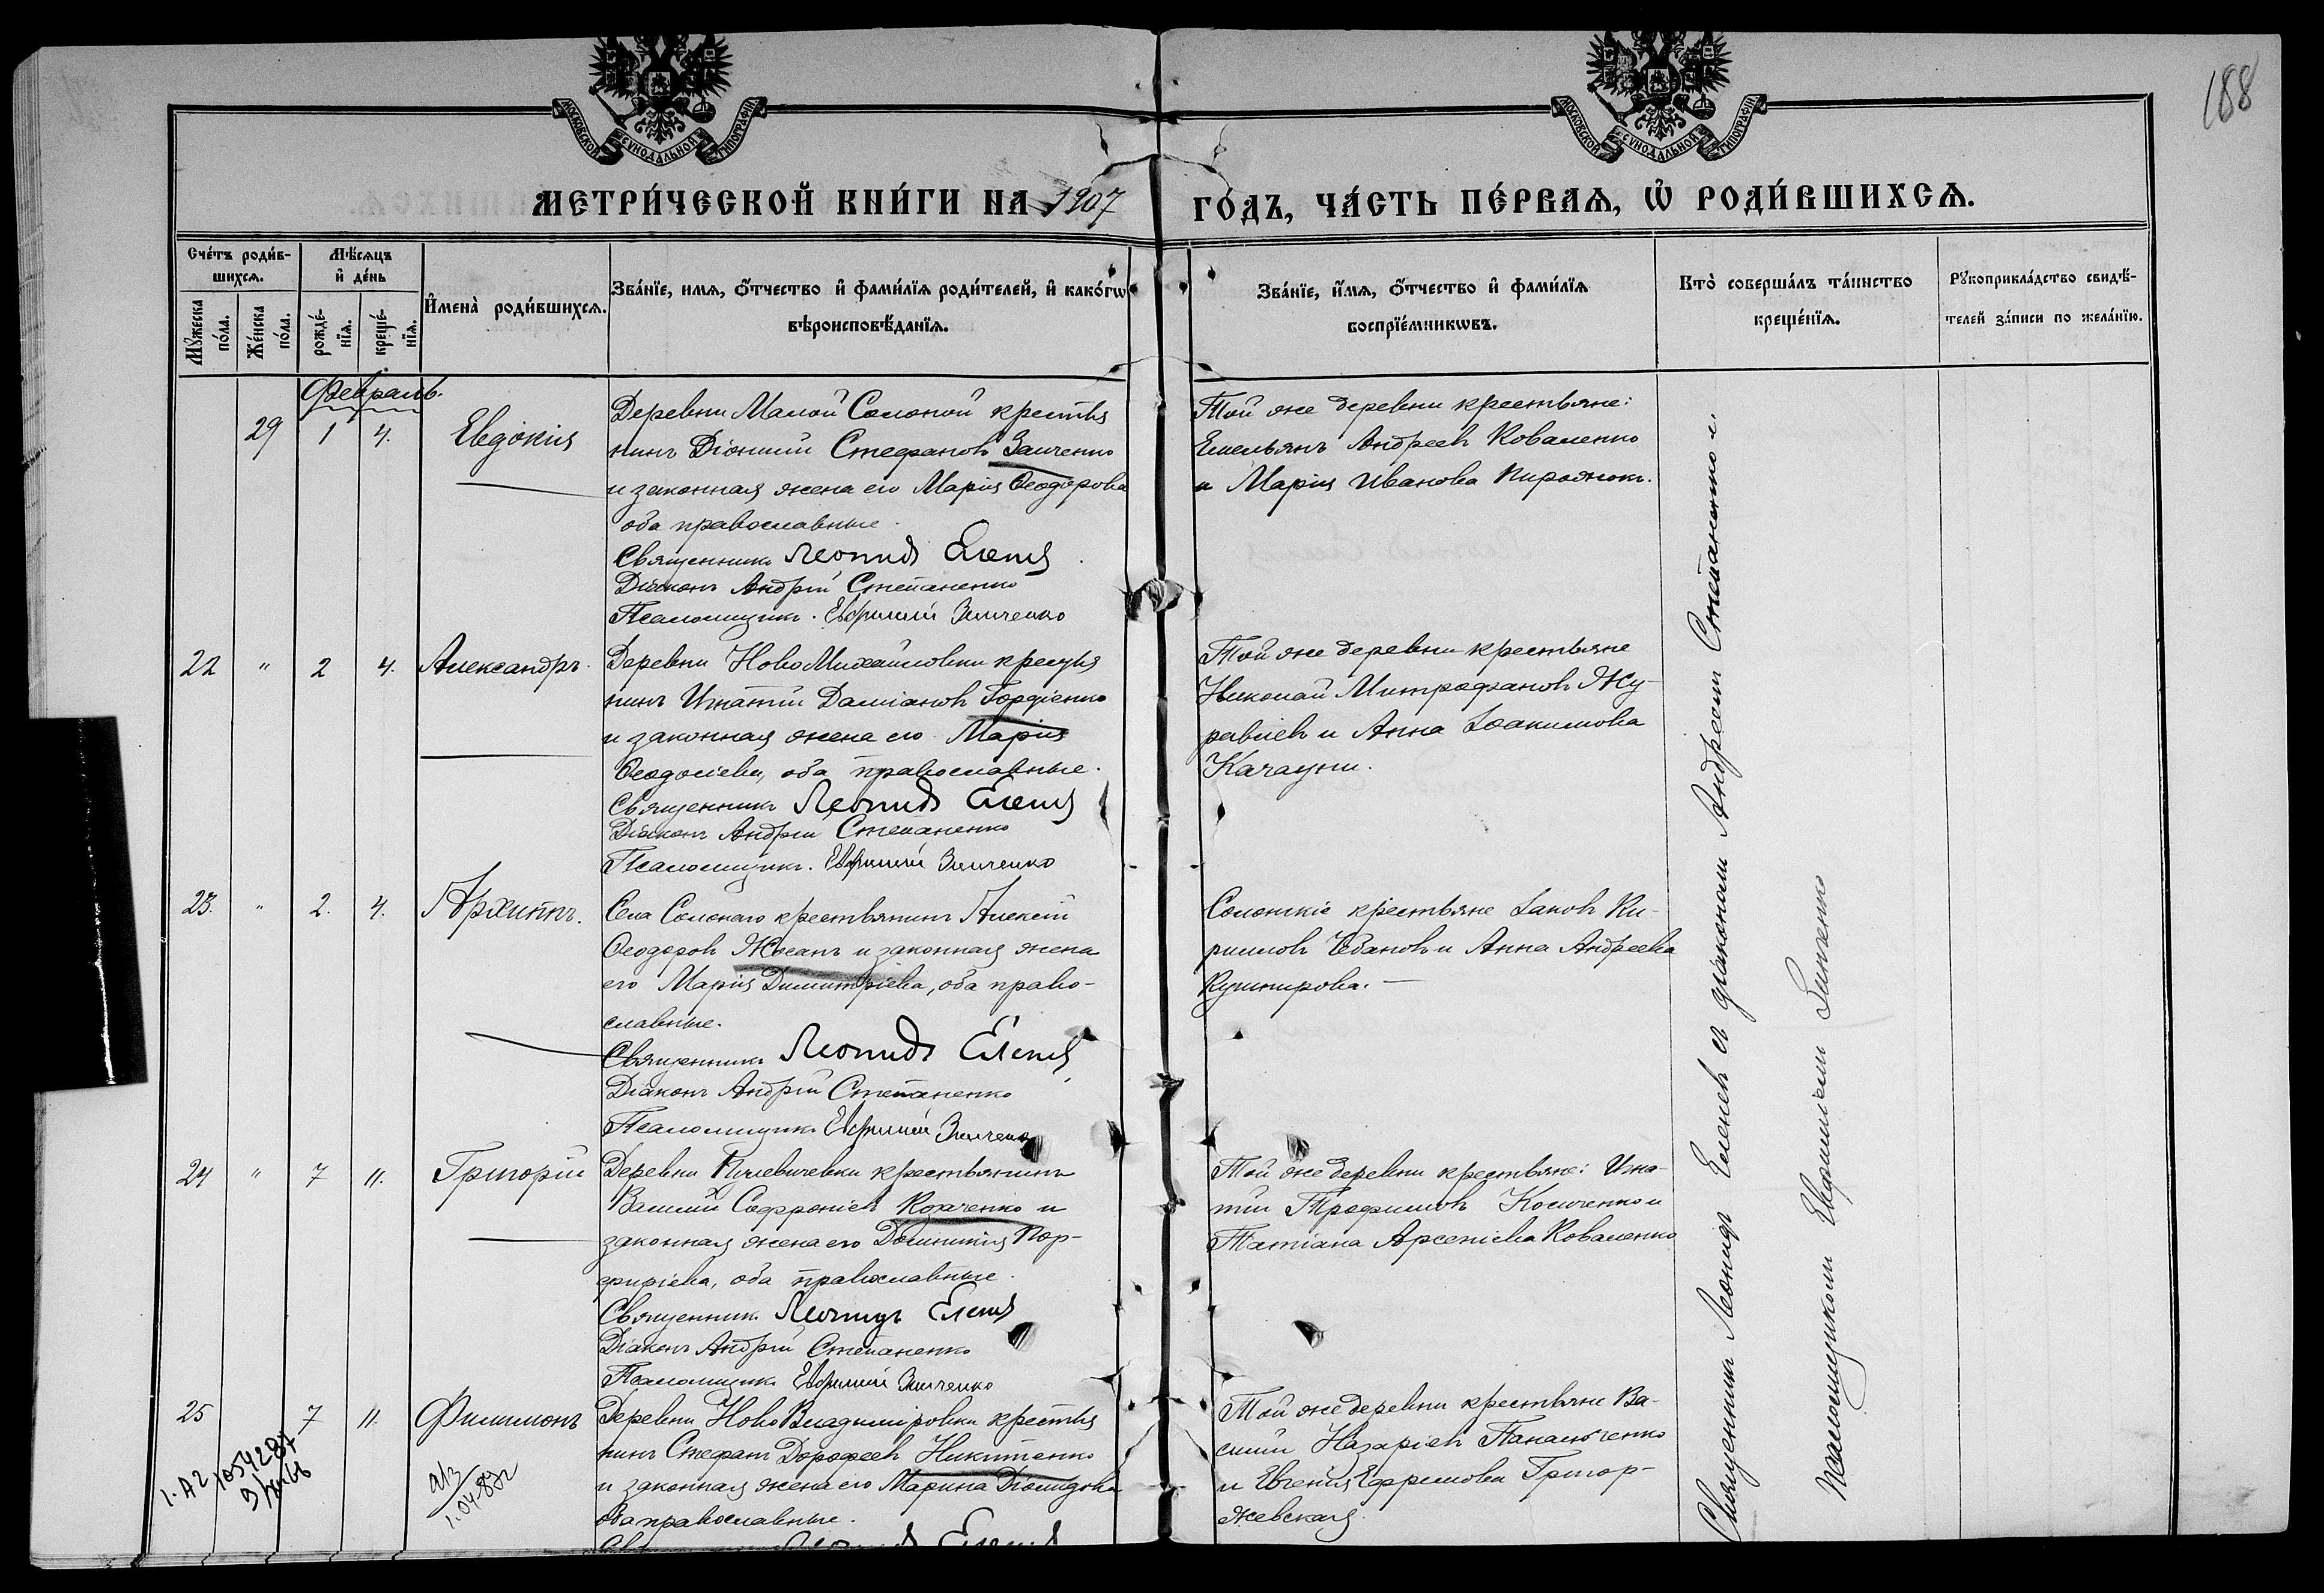 188
МОСКОВСКОЙ СѴНОДАЛЬНОЙ ТИПОГРАФІИ
МОСКОВСКОЙ СѴНОДАЛЬНОЙ ТИПОГРАФІИ
МЕТРИ́ЧЕСКОЙ КНИ́ГИ НА 1907 ГО́ДЪ, ЧА́СТЬ ПЕ́РВАѦ, Ѿ РОДИ́ВШИХСѦ.
Сче́тъ роди́в-
шихсѧ.
Мꙋ́жеска
по́ла.
Же́нска
по́ла.
Мѣ́сѧцъ
и҆ де́нь
рожде́-
нїѧ.
креще́-
нїѧ.
И҆мена̀ роди́вшихсѧ.
Зва́нїе, имѧ, ѻ҆́тчество и҆ фами́лїѧ роди́телей, и҆ како́гѡ
вѣроисповѣ́данїѧ.
Зва́нїе, и҆́мѧ, ѻ҆́тчество и҆ фами́лїѧ
воспрїе́мникѡвъ.
Кто̀ соверша́лъ та́инство
креще́нїѧ.
Рꙋкоприкла́дство свидѣ́-
телей за́писи по жела́нїю.
Февраль.
29 1 4. Евдокія
Деревни Малой Солоной крестья
нинъ Діонисій Стефановъ Заиченко
и законная жена его Марія Ѳеодорова
оба православные.
Священникъ Леонидъ Еленев
Діаконъ Андрей Степаненко
Псаломщикъ Евфимій Зинченко
Той же деревни крестьяне:
Емельянъ Андреевъ Коваленко
и Марія Иванова
22 " 2 4. Александръ.
Деревни НовоМихайловки крестья
нинъ Игнатій Даміановъ Гордіенко
и законная жена его Марія
Ѳеодосіева, оба православные.
Священникъ Леонидъ Еленев
Діаконъ Андрей Степаненко
Псаломщикъ Евфимій Зинченко
Той же деревни крестьяне
Николай Митрофановъ Жу-
равлевъ и Анна Іоакимова
23. " 2. 4. Архиппъ.
Села Солонаго крестьянинъ Алексій
Ѳеодоровъ Жосанъ и законная жена
его Марія Димитріева, оба право-
славные.
Священникъ Леонидъ Еленев
Діаконъ Андрей Степаненко
Псаломщикъ Евфимій Зинченко
Солонскіе крестьяне Іаковъ Ки-
рилловъ Чебановъ и Анна Андреева
Кушнирова.
24 " 7 11. Григорій
Деревни крестьянинъ
Василій Софроніевъ Козаченко и
законная жена его Доминикія Пор-
фиріева, оба православные.
Священникъ Леонидъ Еленев
Діаконъ Андрей Степаненко
Псаломщикъ Евфимій Зинченко
Той же деревни крестьяне: Игна-
тій Трофимовъ Косиченко и
Татіана Арсеніева Коваленко
25 7 11. Филимонъ
Деревни НовоВладиміровки крестья
нинъ Стефанъ Дорофеевъ Никитенко
и законная жена его Марина Діомидова
оба православные.
Той же деревни крестьяне Ва-
силій Назаріевъ Панасюченко
и Евгенія Ефремова Григор-
жевская.
Священникъ Леонидъ Еленевъ съ діакономъ Андреемъ Степаненко и
псаломщикомъ Евфиміемъ Зинченко